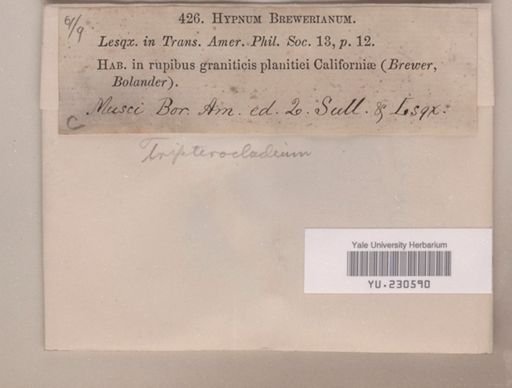 426. HYPNUM BREWERIANUM.
Lesqx. in Trans. Amer. Phil. Soc. 13, p. 12.
HAB. in rupibus graniticis planitiei Californiæ (Brewer,
Bolander).
Musci Bor. Am. ed. 2. Sull. & Lsqx.
C
Tripterocladium
Yale University Herbarium
YU.230590